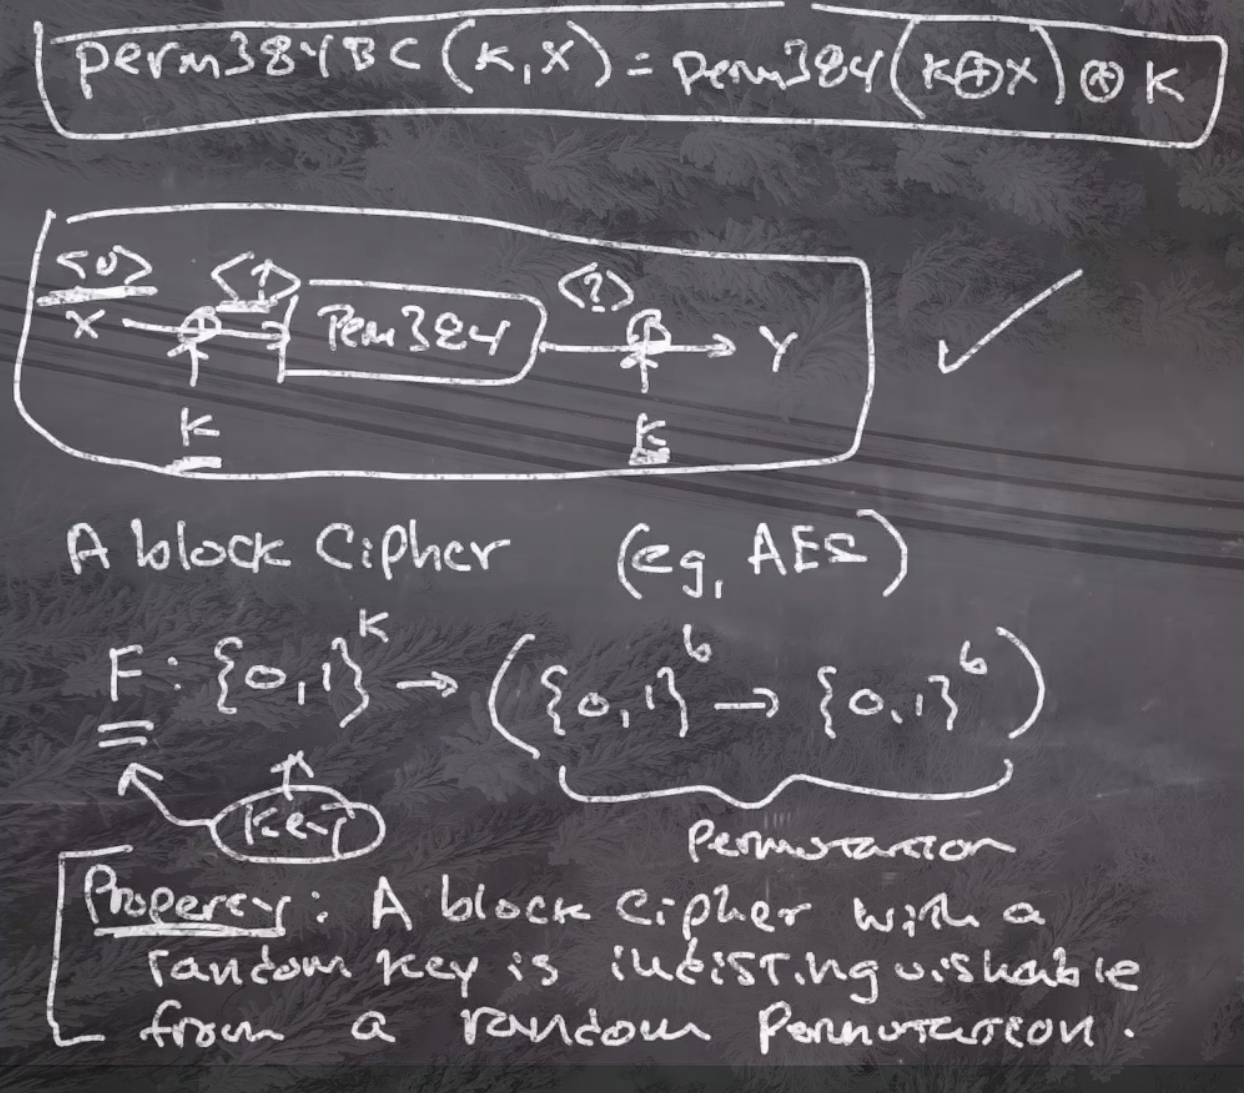 perm384BC (K, X) = perm384 (K⊕X) ⊗ K
<0> <1> <?>
X ⊕ Perm384 ⊕ Y
K K
A block Cipher (eg, AES)
F: {0,1}^K → ({0,1}^b → {0,1}^b)
Key
Permutation
Property: A block cipher with a
random key is indistinguishable
from a random Permutation.